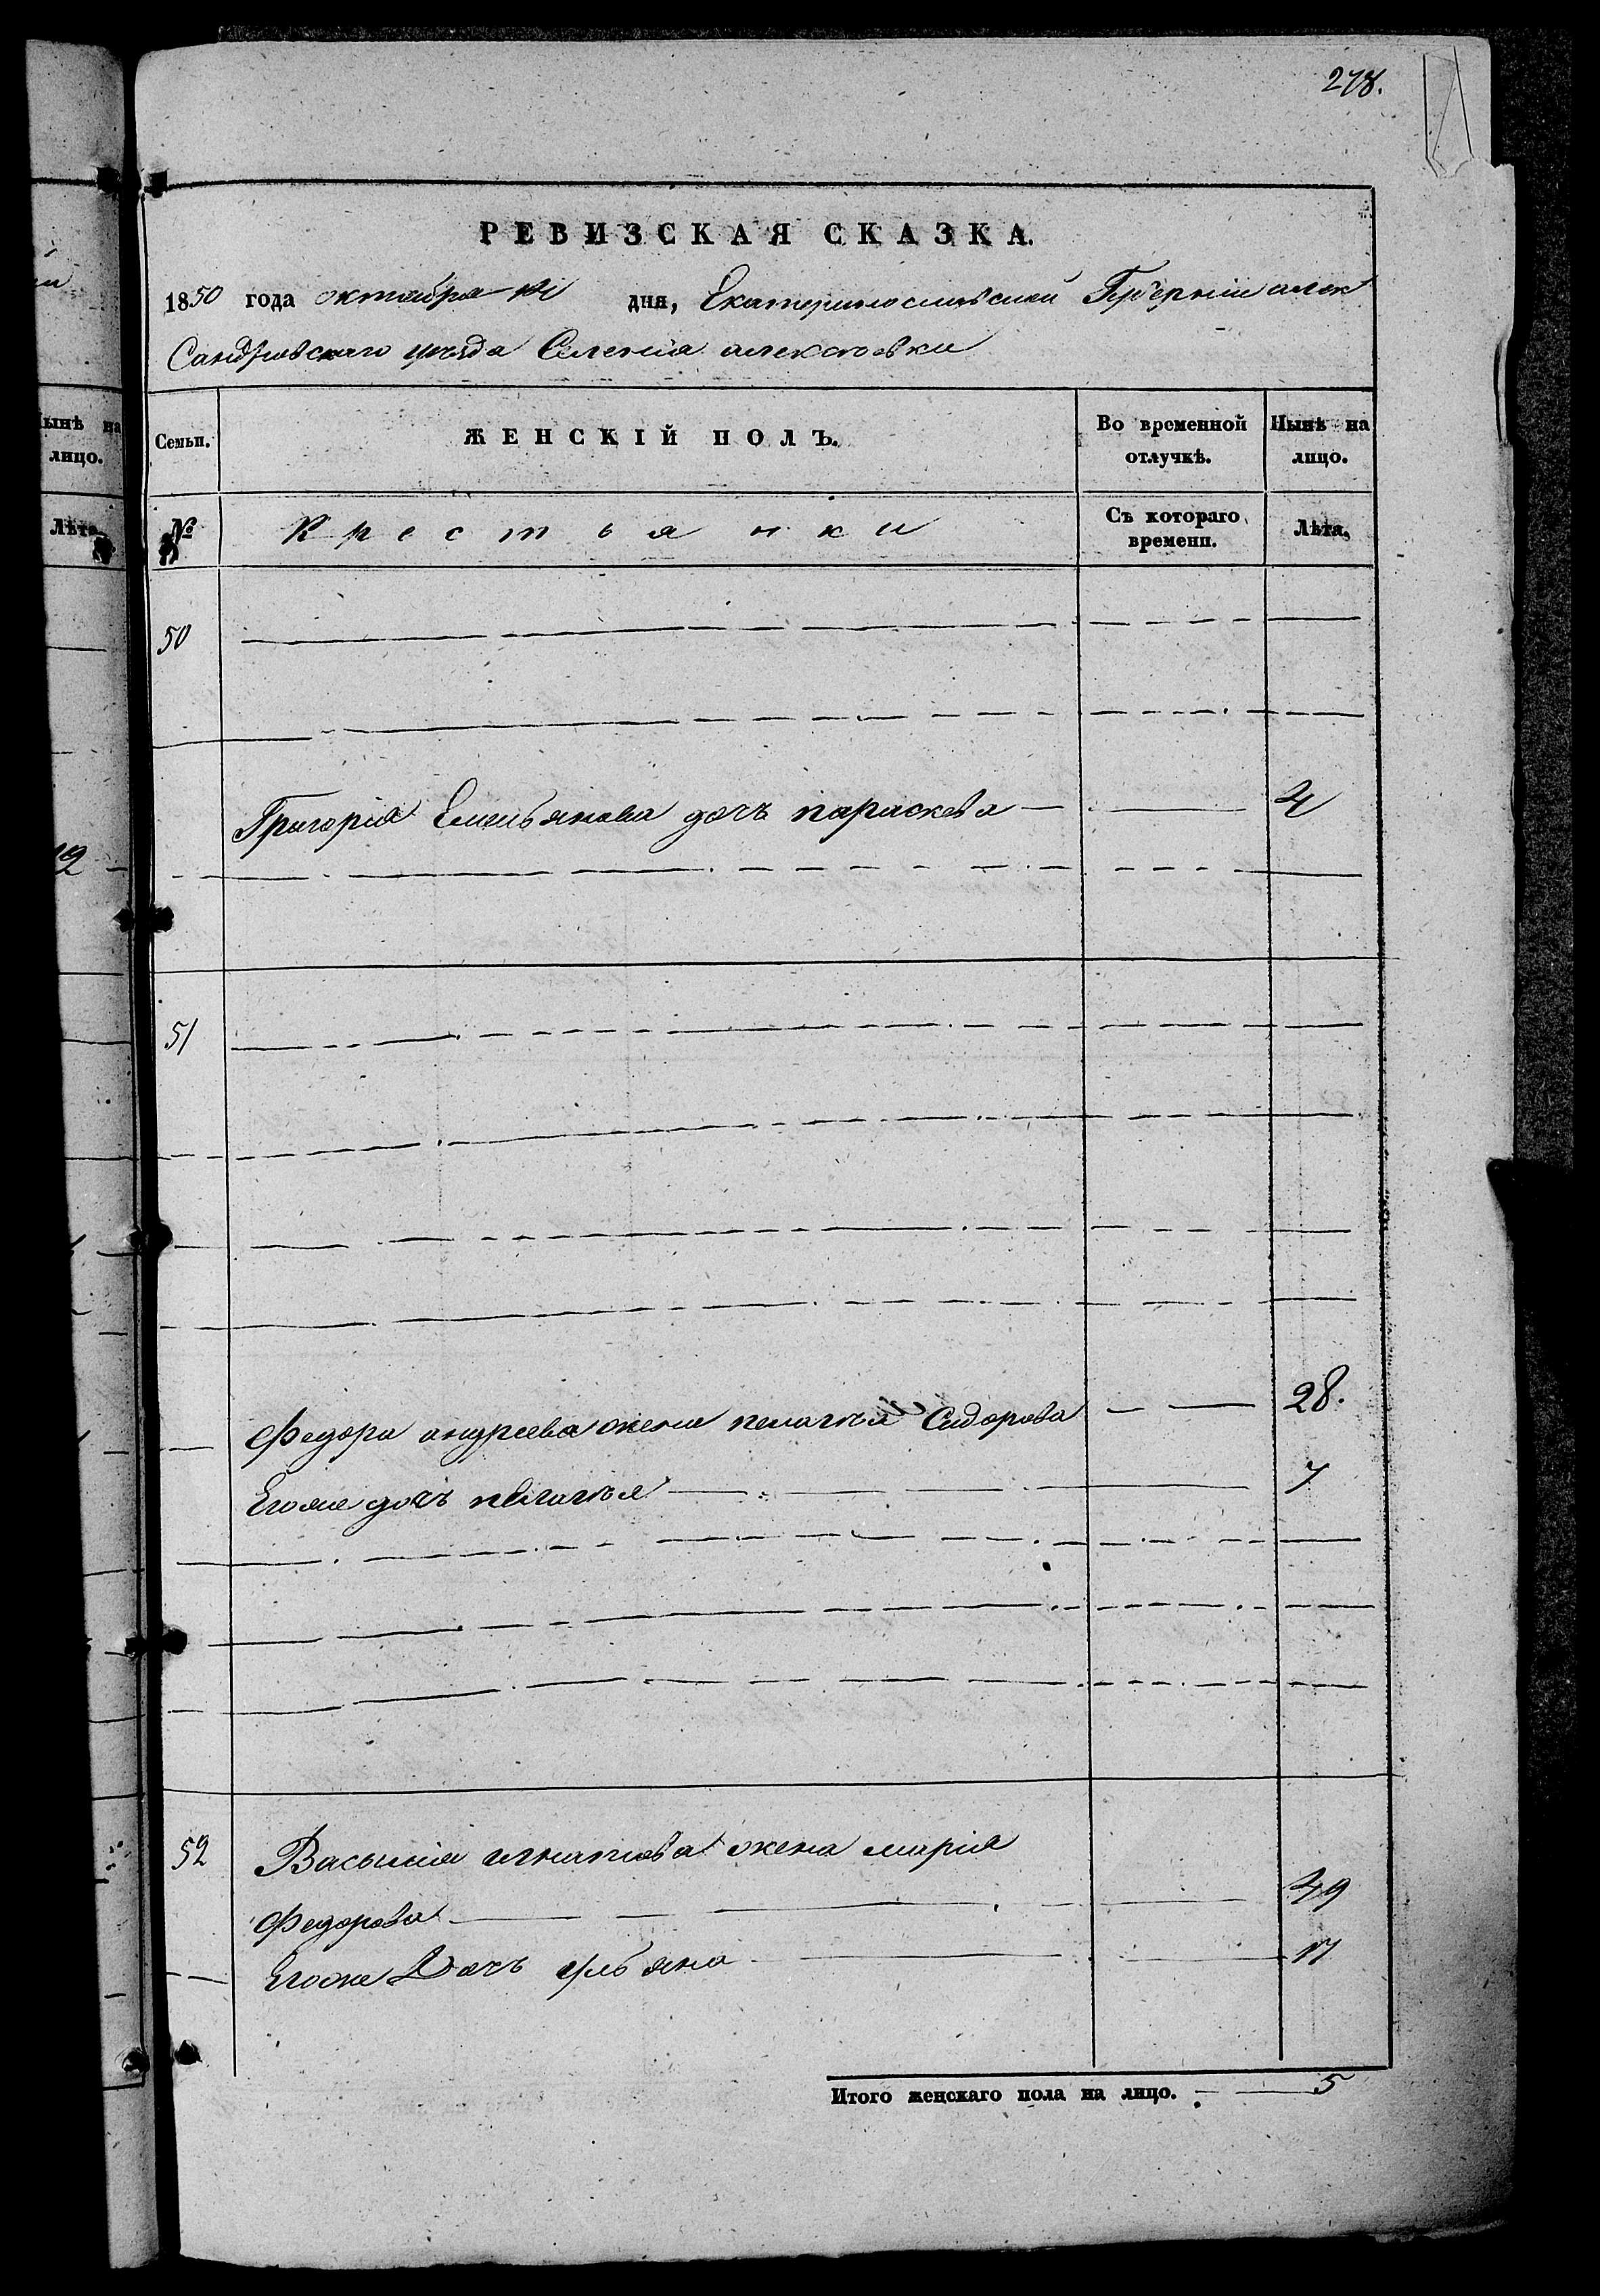 278.
РЕВИЗСКАЯ СКАЗКА.
1850 года октября дня, Екатеринославской Губерніи алек
Сандровскаго уезда Селенія
Семьи. ЖЕНСКІЙ ПОЛЪ. Во временной отлучкѣ. Нынѣ на лицо.
№ Крестьянки Съ котораго времени. Лѣта.
50
Григорія Емельянова дочъ параскева 4
51
Федора андреева жена пелагѣя Сидорова 28.
Егоже дочъ пелагѣя 7
52 Василия игнатова жена марія
Федорова 49
Егоже Дочъ ульяна 17
Итого женскаго пола на лицо. 5
ынѣ на
лицо.
Лѣта